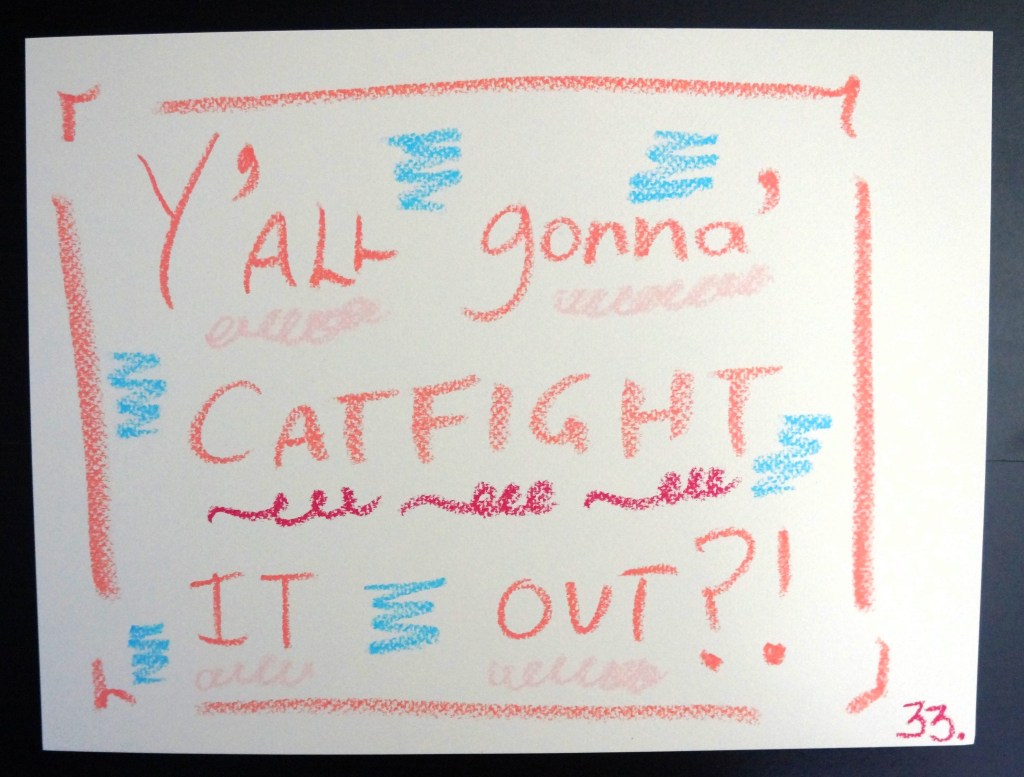 Y'ALL gonna'
CATFIGHT
IT OUT?!
33.